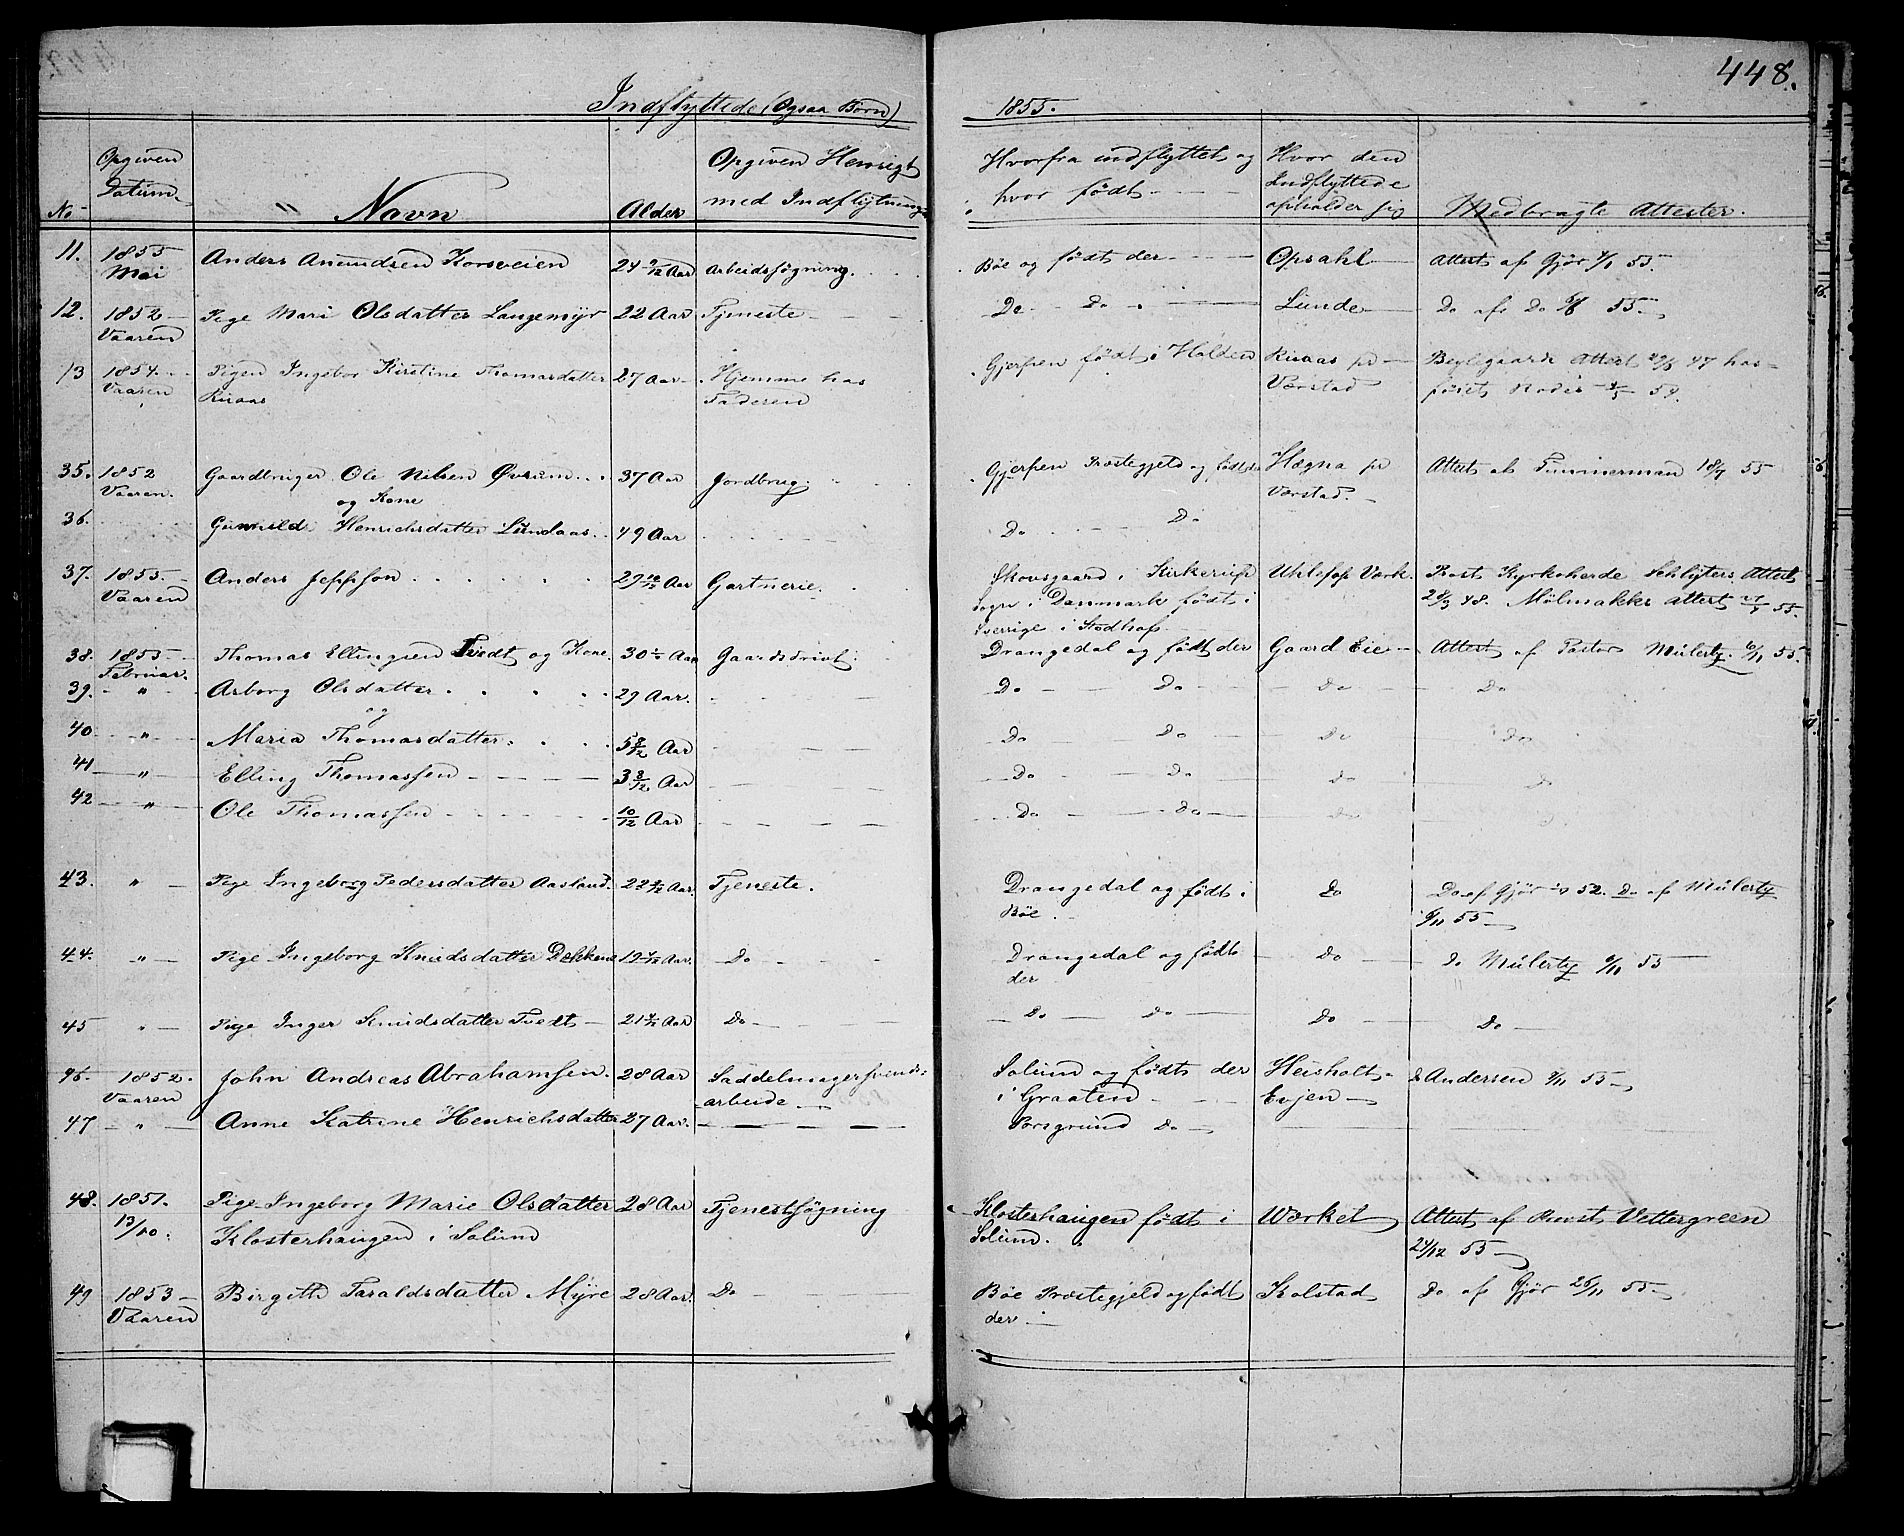 448.
Indflyttede (Ogsaa Børn) 1855.
No Opgiven Datum Navn Alder Opgiven Hensigt med Indflytning Hvorfra indflyttet og hvor født Hvor den Indflyttede opholder sig Medbragte Attester.
11. 1855 Mai Anders Amundsen Korsveien 24 9/12 Aar Arbeidssøgning. Bøe og født der Opsahl Attest af Gjør 55.
12. 1852 Vaaren Pige Mari Olsdatter Langemyr 22 Aar Tjeneste Do Do Lunde Do af Do 55
13 1854 Vaaren Pigen Ingebor Kirstine Thomasdatter 27 Aar Hjemme hos Gjerpen født i Holden paa Attest 47
Faderen Værstad 54.
35. 1852 Vaaren. Gaardbruger Ole Nilsen Øvrum 37 Aar Jordbrug. Gjerpen Præstegjeld og født der Hægna Værstad. Attest af Timmerman 18/7 55
og Kone
36. Gunnild Henrichsdatter Lundaas 49 Aar Do Do
37. 1855. Vaaren Anders Jeppson 29 10/12 Aar Gartnerie. Skovsgaard i Kirkerup Uhlefos Værk. Prost Kyrkoherde Schlyters Attest
Sogn i Danmark født i 28/3 48. Attest 55.
Sverrige i
38. 1855 Februar. Thomas Ellingsen Tvedt og Kone 30 Aar Gaardsdrivt. Drangedal og født der Gaard Eie Attest af Pastor Mülertz 6/11 55.
39. " Asborg Olsdatter 29 Aar. Do Do Do Do
og
40 " Maria Thomasdatter. 5 8/12 Aar Do Do Do Do
41 " Elling Thomassen 3 8/12 Aar Do Do Do Do
42 " Ole Thomassen 10/12 Aar Do Do Do
43. " Pige Ingeborg Pedersdatter Aasland. 22 Aar. Tjeneste. Drangedal og født i Bøe. Do Do af Gjør 52. Do af Mülertz
6/11 55
44. " Pige Ingeborg Knudsdatter 19 Aar. Do Drangedal og født der Do Do Mülertz 6/11 55
45 " Pige Inger Knudsdatter Tvedt 21 Aar Do Do Do Do Do
46. 1852. Vaaren John Andreas Abrahamsen. 28 Aar Saddelmagersvends- Solum og født der Heisholt- Do Andersen 55
arbeide i Graaten Eijen
47 " Anne Katrine Henrichsdatter 27 Aar. Porsgrund Do
48. 1851. 13/10. Pige Ingeborg Marie Olsdatter 28 Aar Tjenestsøgning Klosterhaugen født i Værket Attest af Provst Vettergreen
Klosterhaugen i Solum Solum. 24/12 55
49 1853 Vaaren Birgith Taraldsdatter Myre 28 Aar. Do Bøe Præstegjeld og født der Kolstad Do af Gjør 26/11 55